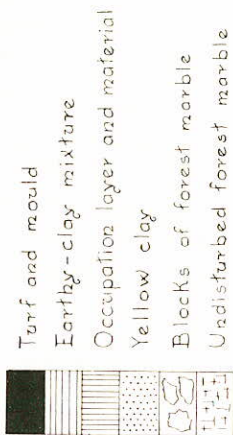 Turf and mould
Earthy-clay mixture
Occupation layer and material
Yellow clay
Blocks of forest marble
Undisturbed forest marble